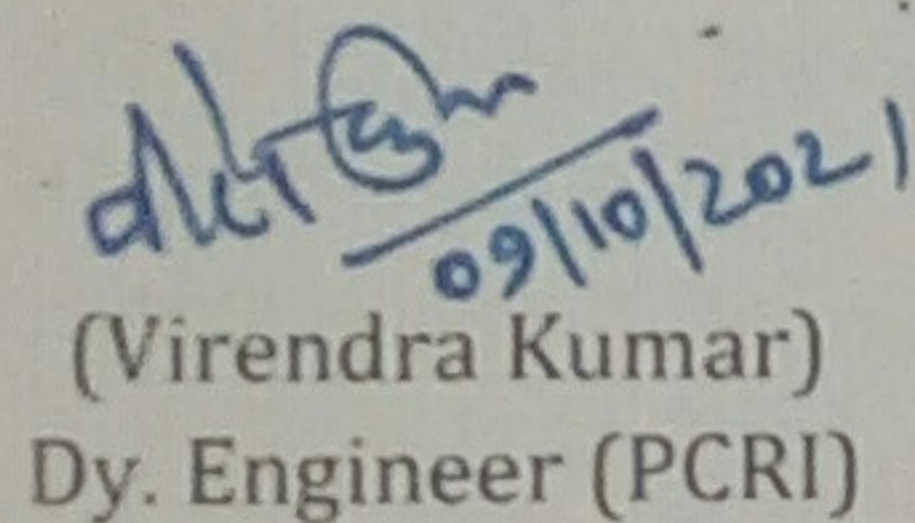 09/10/2021
(Virendra Kumar)
Dy. Engineer (PCRI)